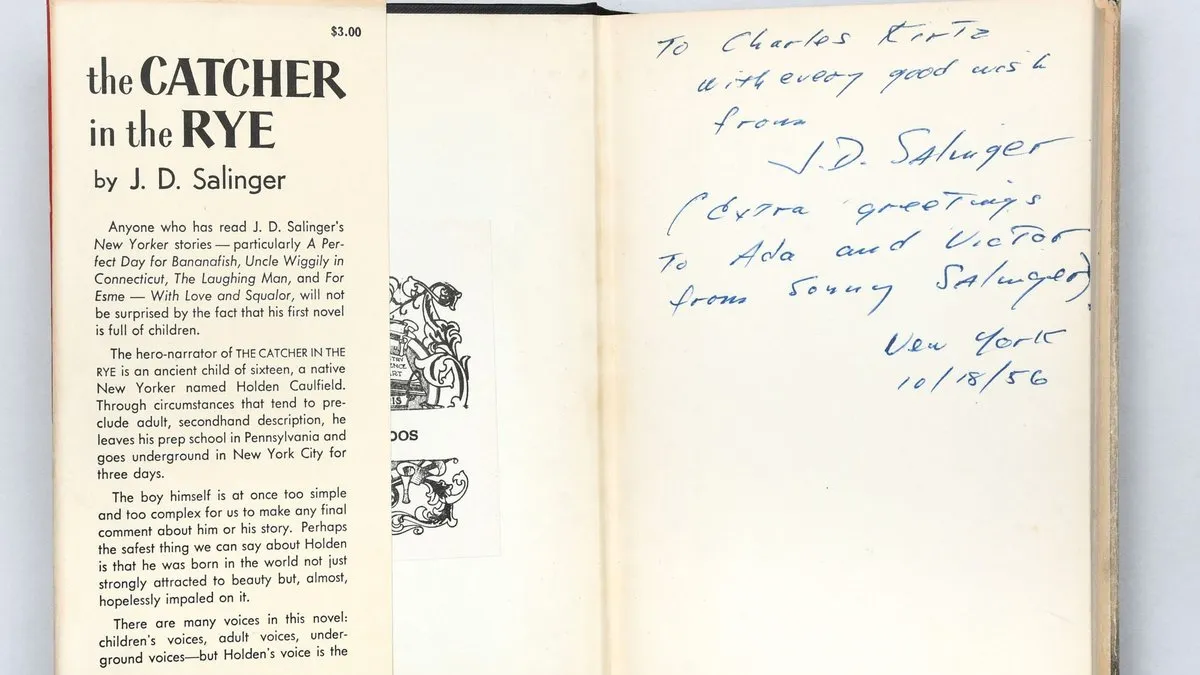 $3.00
the CATCHER
in the RYE
by J. D. Salinger
Anyone who has read J. D. Salinger's
New Yorker stories — particularly A Per-
fect Day for Bananafish, Uncle Wiggily in
Connecticut, The Laughing Man, and For
Esme — With Love and Squalor, will not
be surprised by the fact that his first novel
is full of children.
The hero-narrator of THE CATCHER IN THE
RYE is an ancient child of sixteen, a native
New Yorker named Holden Caulfield.
Through circumstances that tend to pre-
clude adult, secondhand description, he
leaves his prep school in Pennsylvania and
goes underground in New York City for
three days.
The boy himself is at once too simple
and too complex for us to make any final
comment about him or his story. Perhaps
the safest thing we can say about Holden
is that he was born in the world not just
strongly attracted to beauty but, almost,
hopelessly impaled on it.
There are many voices in this novel:
children's voices, adult voices, under-
ground voices—but Holden's voice is the
OOS
To Charles Kirtz
with every good wish
from
J.D. Salinger
(Extra greetings
To Ada and Victor
from Sonny Salinger)
New York
10/18/56